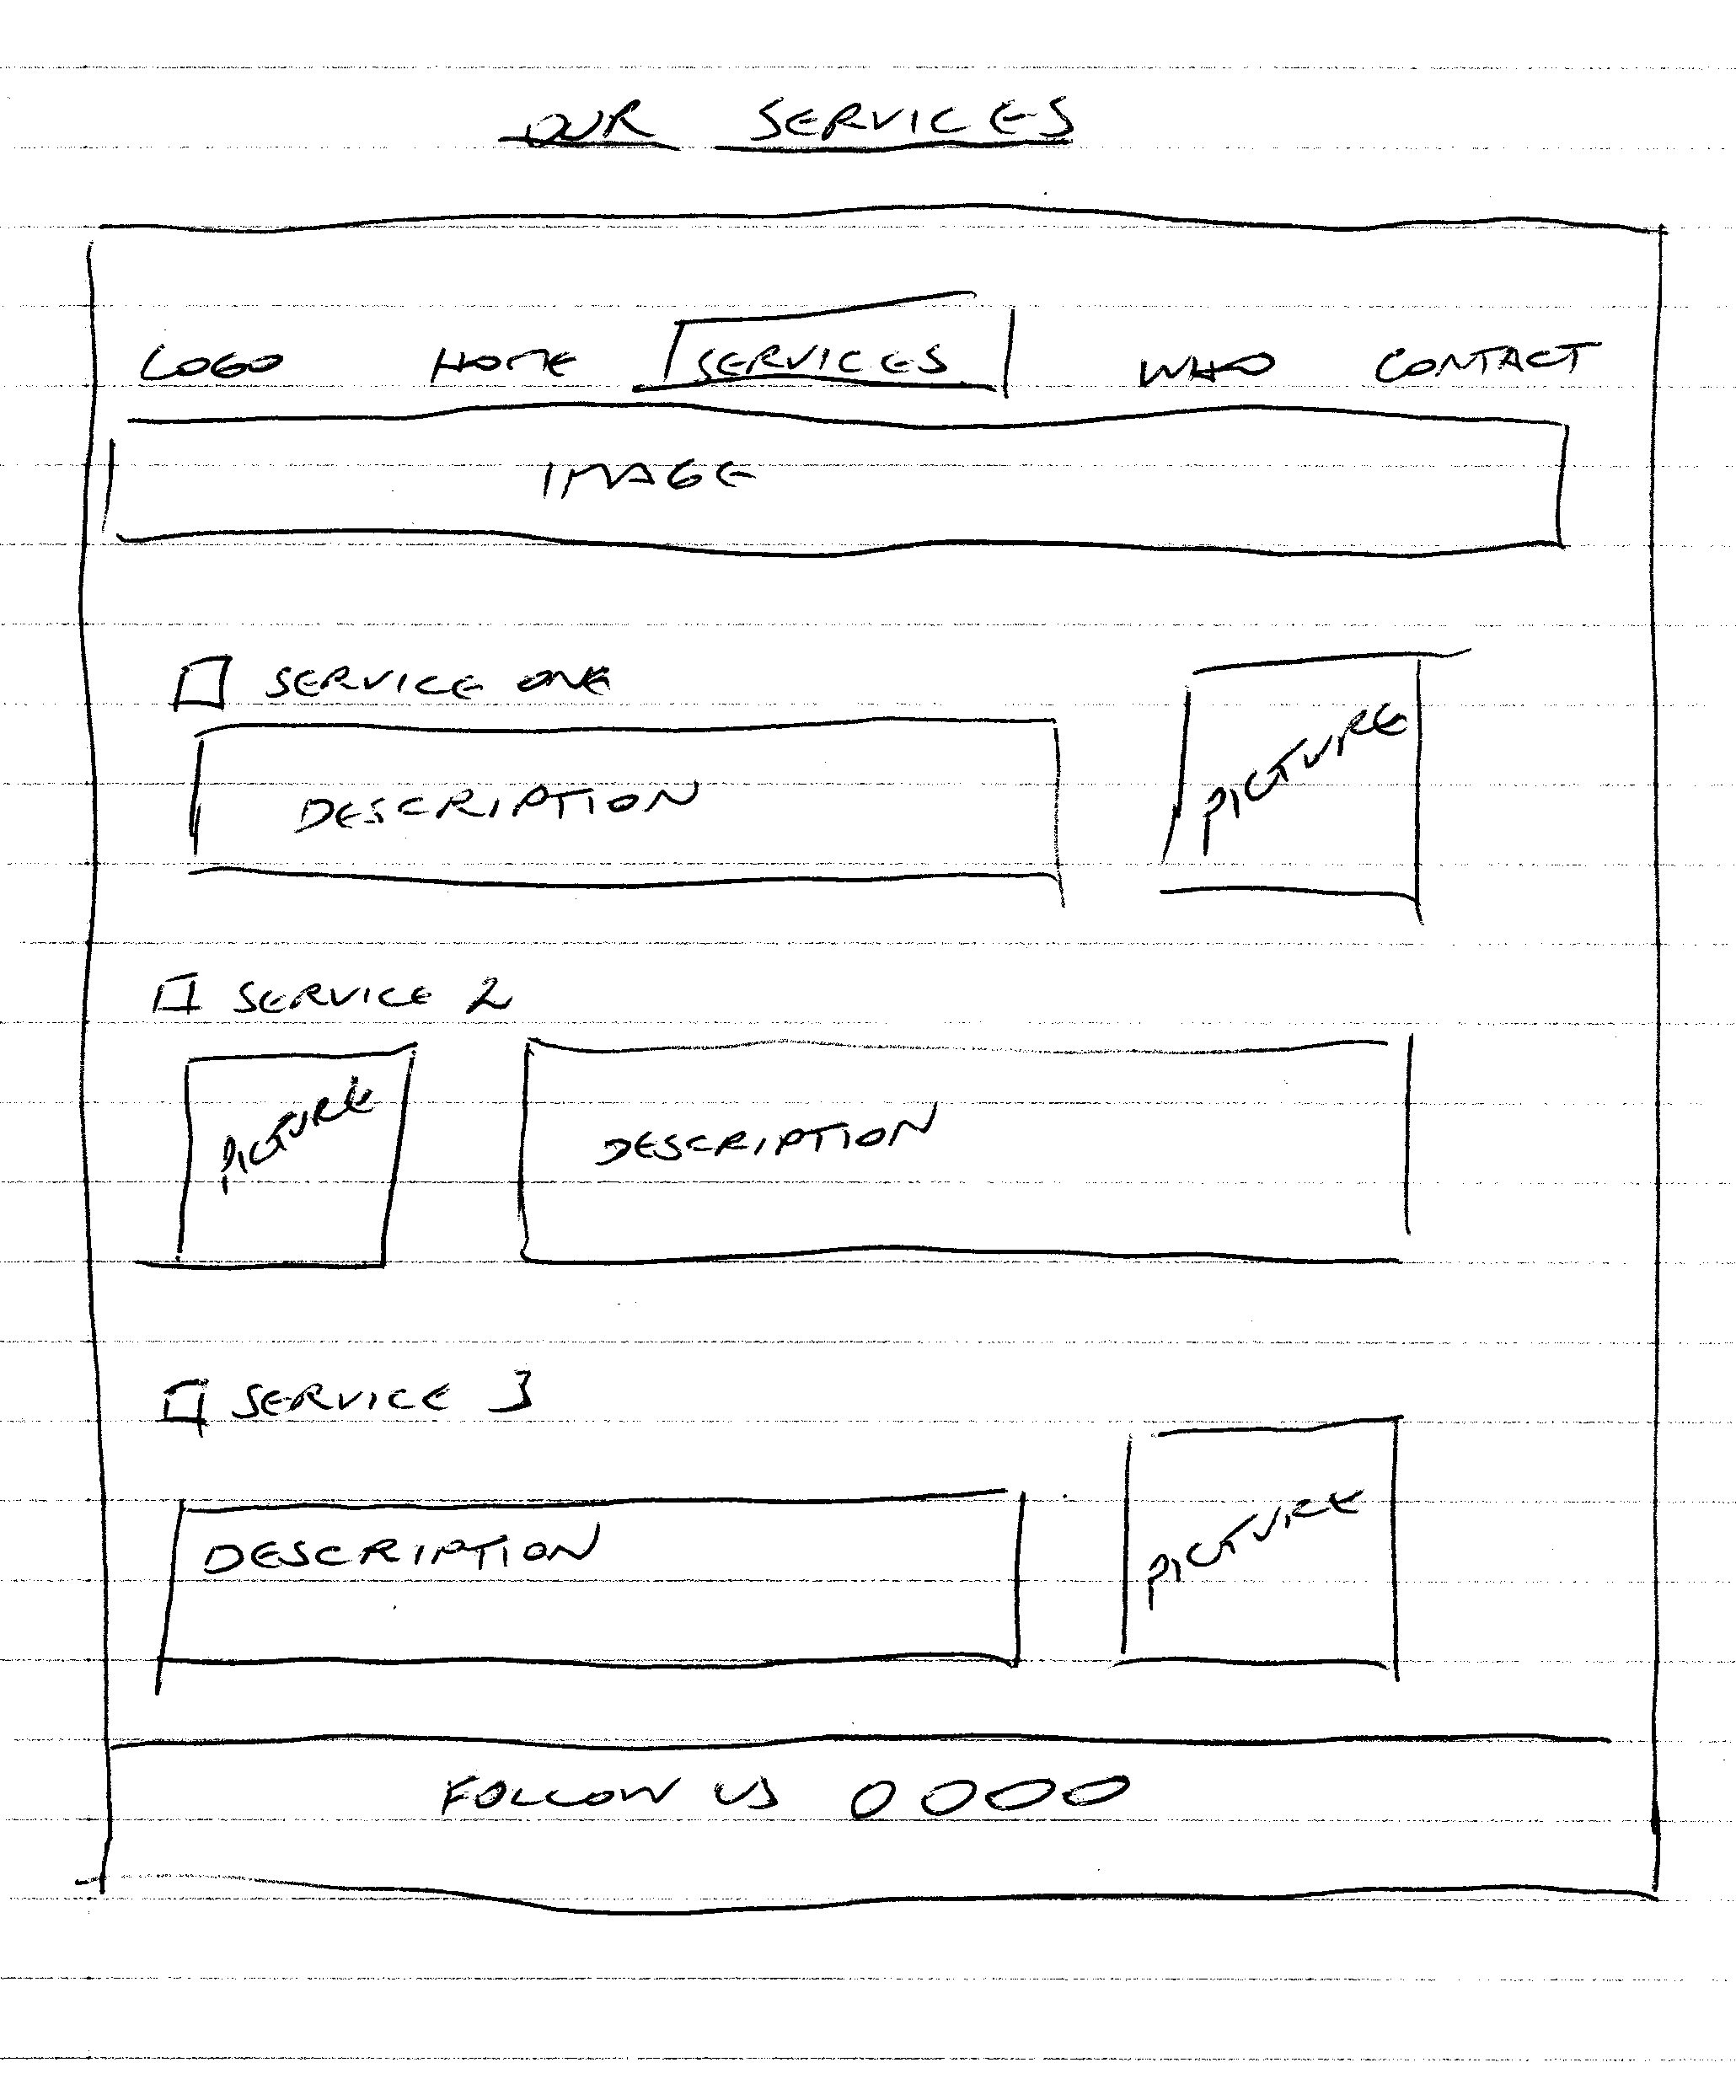 OUR SERVICES
LOGO HOME SERVICES WHO CONTACT
IMAGE
SERVICE ONE
DESCRIPTION
PICTURE
SERVICE 2
PICTURE
DESCRIPTION
SERVICE 3
DESCRIPTION
PICTURE
FOLLOW US